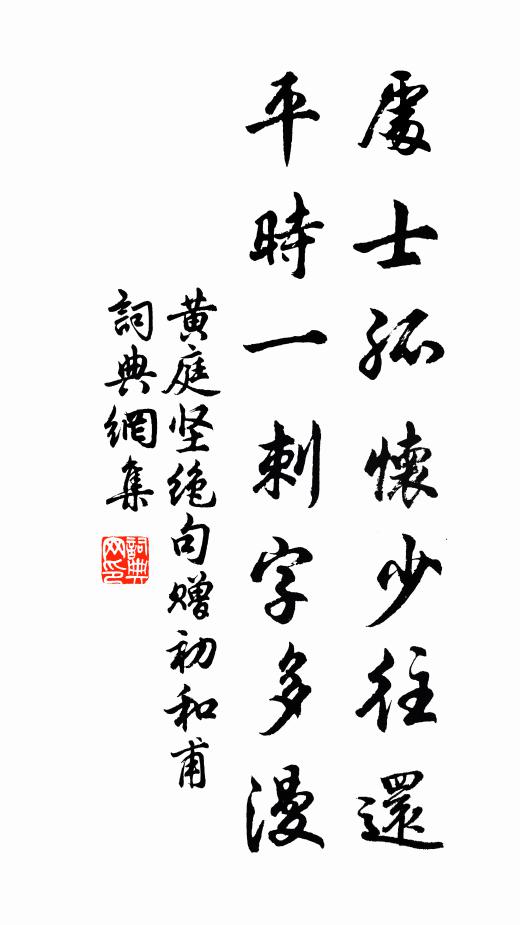 處士孤懷少往還
平時一刺字多漫
黃庭坚绝句赠初和甫
詞典網集
詞典网印